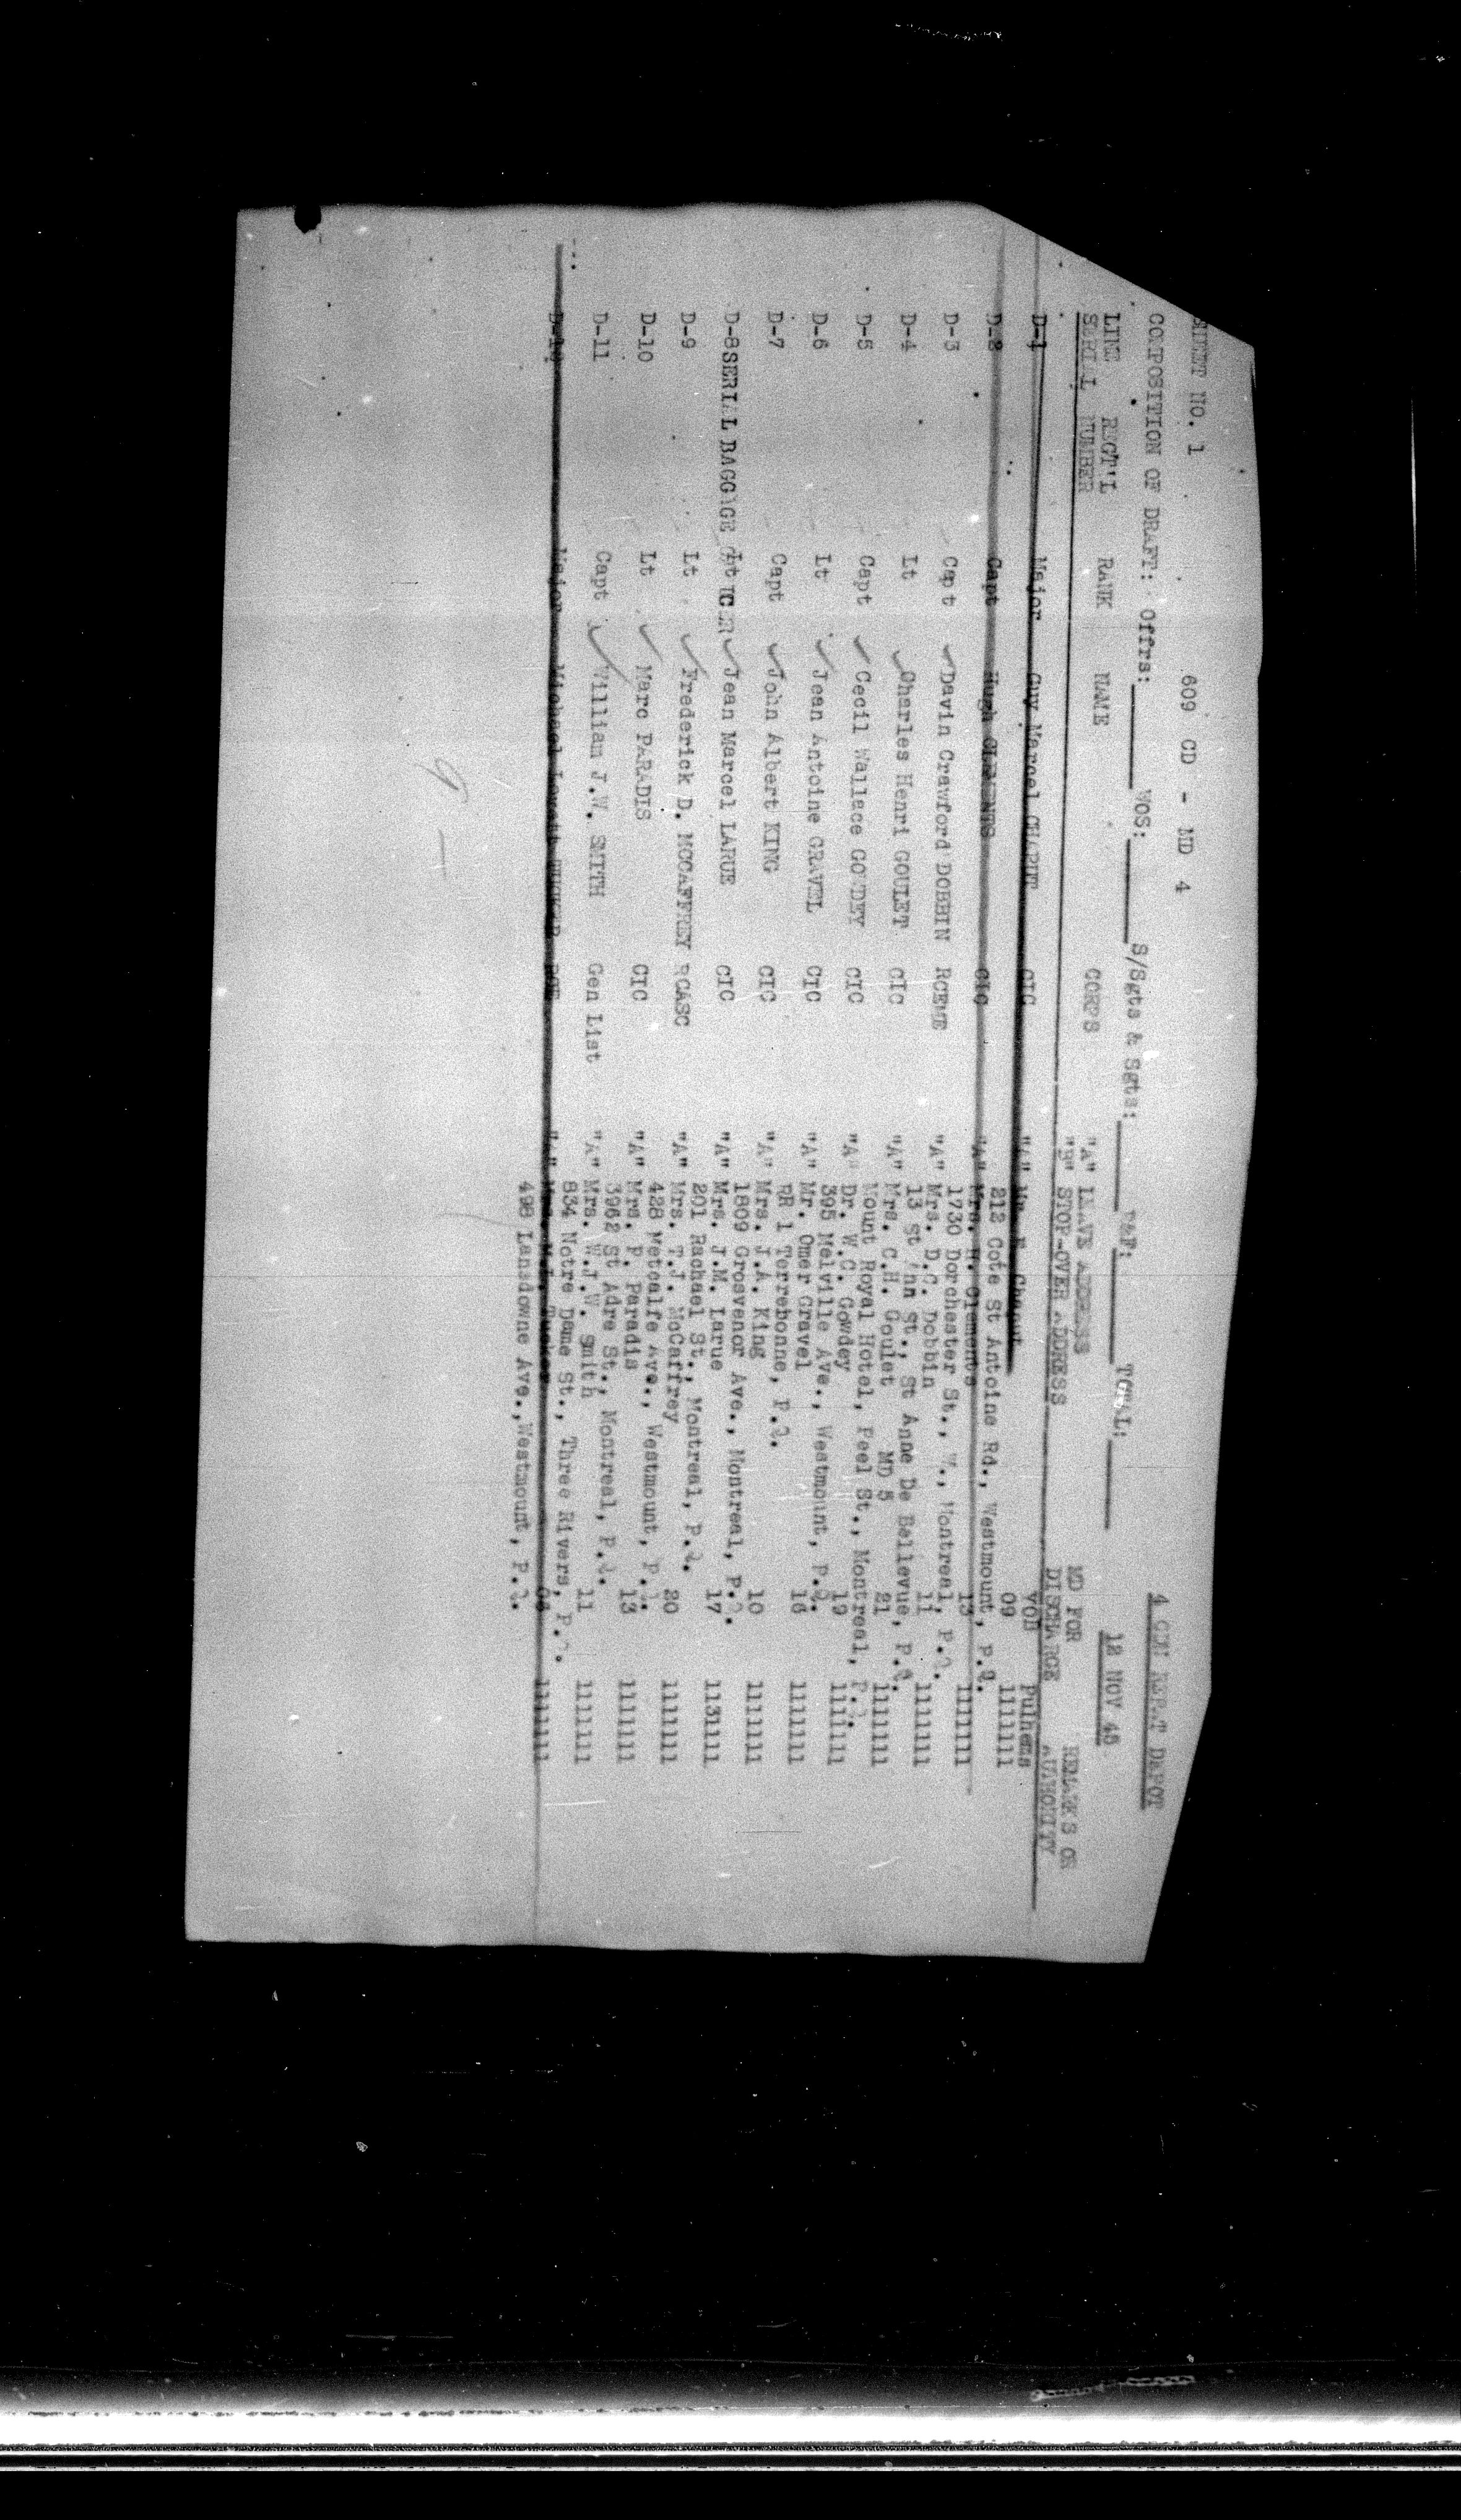 SHEET NO. 1 609 CD - MD 4 4 CDN REPAT DEPOT
COMPOSITION OF DRAFT: Offrs: WOS: S/Sgts & Sgts: R&F: TOTAL: 12 NOV 45
LINE REGT'L RANK NAME CORPS "A" LEAVE ADDRESS MD FOR REMARKS OR
SERIAL NUMBER "B" STOP-OVER ADDRESS DISCHARGE AUTHORITY
YOB Pulhems
D-1 Major Guy Marcel CHAPUT CIC "A" Mr. Chaput 09 1111111
212 Cote St Antoine Rd., Westmount, P.Q.
D-2 Capt Hugh CLEMENTS CIC "A" Mrs. H. Clements 13 1111111
1730 Dorchester St., W., Montreal, P.Q.
D-3 Capt Davin Crawford DOBBIN RCEME "A" Mrs. D.C. Dobbin 11 1111111
13 St Ann St., St Anne De Bellevue, P.Q.
D-4 Lt Charles Henri GOULET CIC "A" Mrs. C.H. Goulet MD 5 21 1111111
Mount Royal Hotel, Peel St., Montreal, P.Q.
D-5 Capt Cecil Wallace GOWDEY CIC "A" Dr. W.C. Gowdey 19 1111111
395 Melville Ave., Westmount, P.Q.
D-6 Lt Jean Antoine GRAVEL CIC "A" Mr. Omer Gravel 16 1111111
RR 1 Terrebonne, P.Q.
D-7 Capt John Albert KING CIC "A" Mrs. J.A. King 10 1111111
1809 Grosvenor Ave., Montreal, P.Q.
D-8 SERIAL BAGGAGE OFFICER Lt Jean Marcel LARUE CIC "A" Mrs. J.M. Larue 17 1131111
201 Rachael St., Montreal, P.Q.
D-9 Lt Frederick D. MCCAFFREY RCASC "A" Mrs. T.J. McCaffrey 20 1111111
428 Metcalfe Ave., Westmount, P.Q.
D-10 Lt Marc PARADIS CIC "A" Mrs. P. Paradis 13 1111111
3962 St Adre St., Montreal, P.Q.
D-11 Capt William J.W. SMITH Gen List "A" Mrs. W.J.W. Smith 11 1111111
834 Notre Dame St., Three Rivers, P.Q.
D-12 Major Michael TUCKER RCE "A" Mrs. M.L. Tucker 1111111
498 Lansdowne Ave., Westmount, P.Q.
9